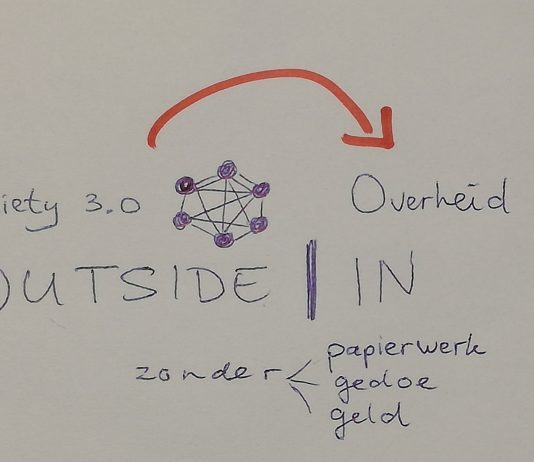 iety 3.0 Overheid
OUTSIDE | IN
zonder < papierwerk
gedoe
geld